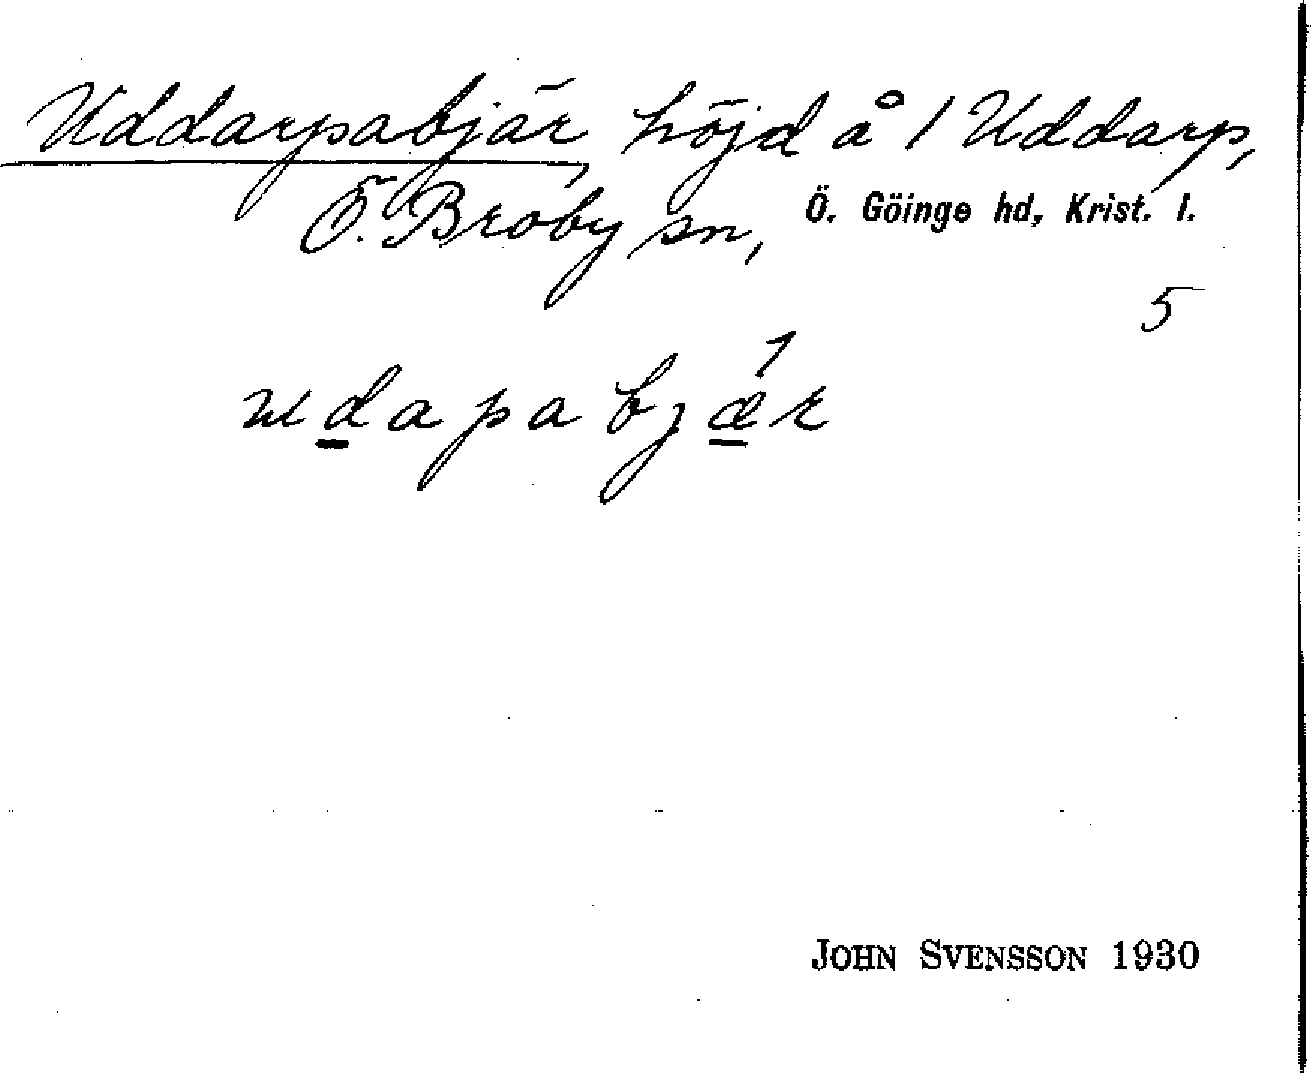 Uddarpabjär, höjd å 1 Uddarp,
Ö. Broby sn, Ö. Göinge hd, Krist. l.
5
udapabjǽr
JOHN SVENSSON 1930